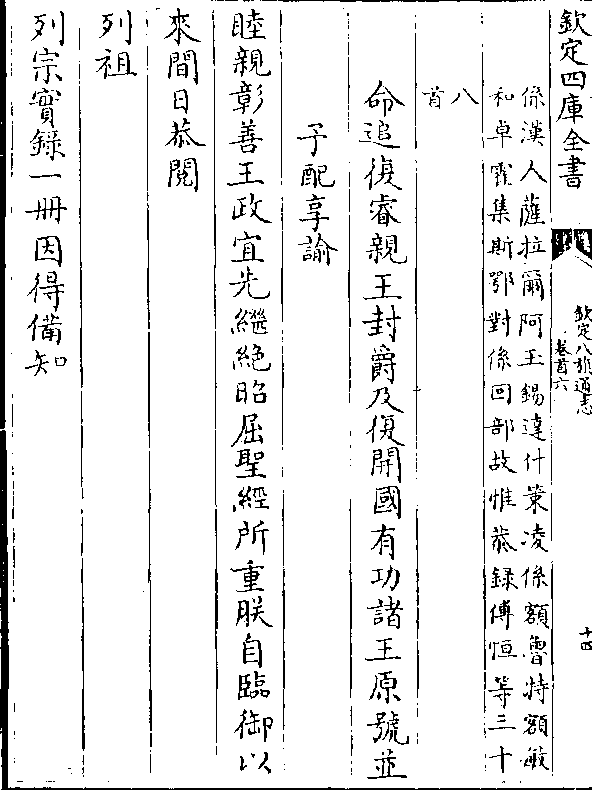 欽定四庫全書
欽定八旗通志
卷首六
十四
係漢人薩拉爾阿玉錫達什策凌係額魯特額敏
和卓霍集斯鄂對係回部故惟恭錄傅恒等三十
八
首
命追復睿親王封爵及復開國有功諸王原號並
予配享諭
睦親彰善王政宜先繼絶昭屈聖經所重朕自臨御以
來間日恭閱
列祖
列宗實錄一冊因得備知